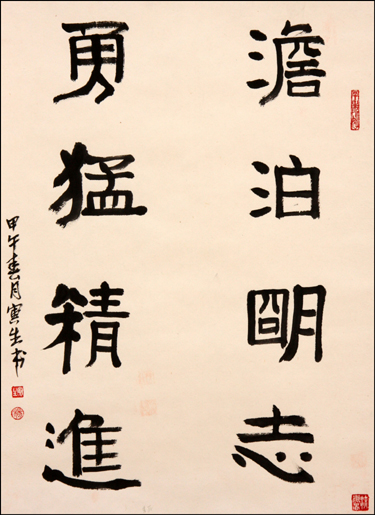 澹泊明志
勇猛精進
甲午春月寅生书